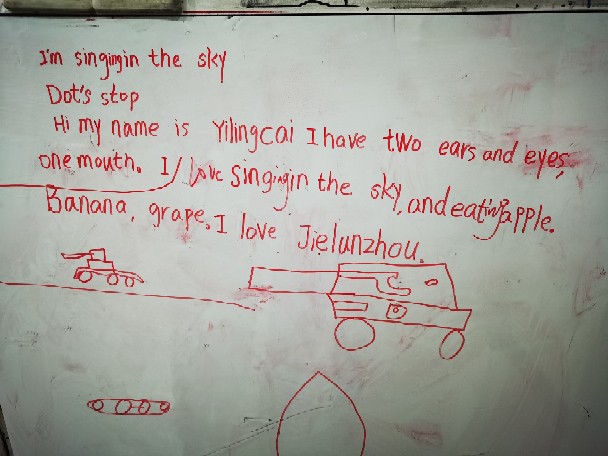 I'm singingin the sky
Dot's stop
Hi my name is Yilingcai I have two ears and eyes,
one mouth. I love singingin the sky, and eating apple.
Banana, grape. I love Jielunzhou.